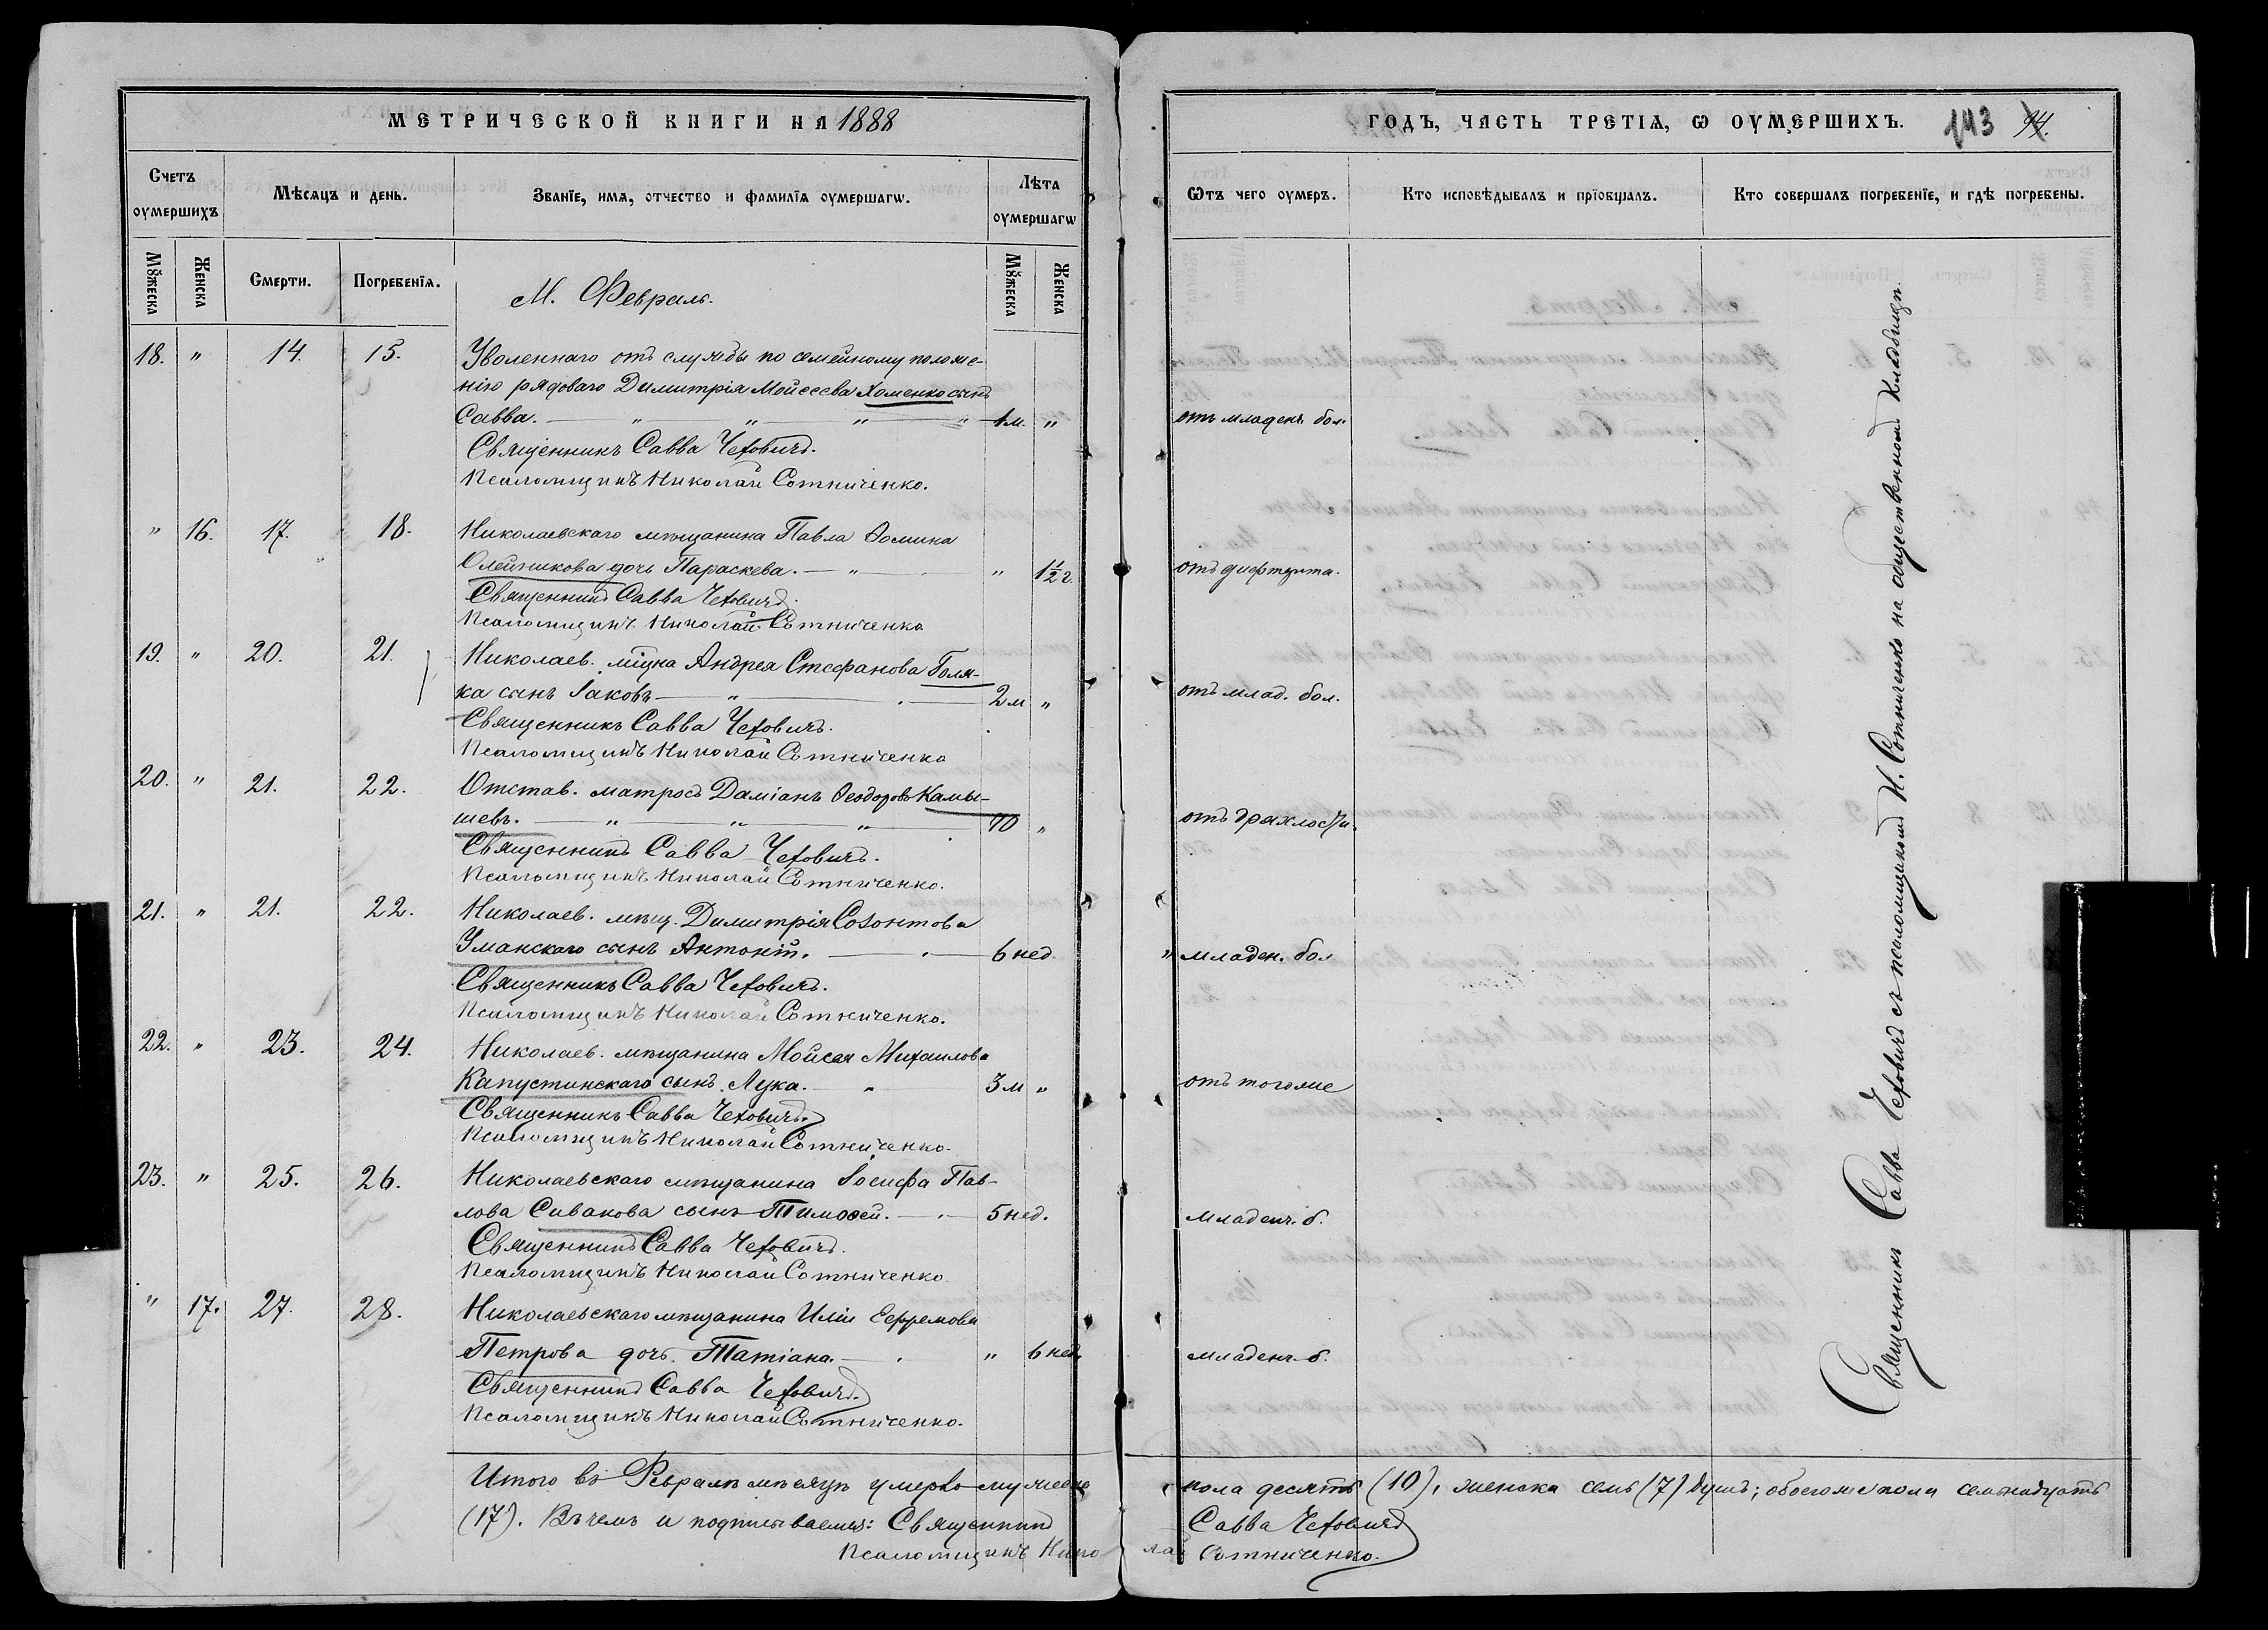 МЕТРИЧЕСКОЙ КНИГИ НА 1888
ГОДЪ, ЧАСТЬ ТРЕТІѦ, Ѡ ОУМЕРШИХЪ. 143 94.
Счетъ оумершихъ
Мѣсѧцъ и день.
Званїе, имѧ, отчество и фамилїѧ оумершагѡ.
Лѣта оумершагѡ
Ѿтъ чего оумеръ.
Кто исповѣдывалъ и прїобщалъ.
Кто совершалъ погребенїе, и гдѣ погребены.
Мꙋжеска
Женска
Смерти.
Погребенїѧ.
Мꙋжеска
Женска
М. Февраль.
18. " 14. 15. Уволеннаго отъ службы по семейному положе-
нію рядоваго Димитрія Мойсеева Хоменко сынъ
Савва. — " — " — " — " 1 м. " отъ младенч. бол.
Священникъ Савва Чеховичъ.
Псаломщикъ Николай Сотниченко.
" 16. 17. 18. Николаевскаго мѣщанина Павла Ѳомина
Олейникова дочь Параскева. — " — " 1½ г. отъ дифтерита.
Священникъ Савва Чеховичъ.
Псаломщикъ Николай Сотниченко
19. " 20. 21. Николаев. міщна Андрея Стефанова Голя-
ка сынъ Іаковъ — " — . — 2 м " отъ млад. бол.
Священникъ Савва Чеховичъ.
Псаломщикъ Николай Сотниченко
20. " 21. 22. Отстав. матросъ Даміанъ Ѳеодоровъ Камы-
шевъ. — " — " — " — 70 " отъ дряхлости.
Священникъ Савва Чеховичъ.
Псаломщикъ Николай Сотниченко.
21. " 21. 22. Николаев. мѣщ. Димитрія Созонтова
Уманскаго сынъ Антоній. — . — 6 нед. " младен. бол
Священникъ Савва Чеховичъ.
Псаломщикъ Николай Сотниченко.
22. " 23. 24. Николаев. мѣщанина Мойсея Михаилова
Капустинскаго сынъ Лука. — " 3 м " отъ тогоже
Священникъ Савва Чеховичъ.
Псаломщикъ Николай Сотниченко.
23. " 25. 26. Николаевскаго мѣщанина Іосифа Пав-
лова Сивакова сынъ Тимоѳей. — . — 5 нед. младенч. б.
Священникъ Савва Чеховичъ.
Псаломщикъ Николай Сотниченко
" 17. 27. 28. Николаевскаго мѣщанина Иліи Ефремова
Петрова дочь Татіана. — . " 6 нед. младенч. б.
Священникъ Савва Чеховичъ.
Псаломщикъ Николай Сотниченко.
Священникъ Савва Чеховичъ съ псаломщикомъ Н. Сотниченко на общественномъ кладбищѣ.
Итого въ Февралѣ мѣсяцѣ умерло мужеска пола десять (10), женска семь (7) душъ; обоегоже пола семнадцать
(17). Въ чемъ и подписываемся: Священникъ Савва Чеховичъ
Псаломщикъ Николай Сотниченко.